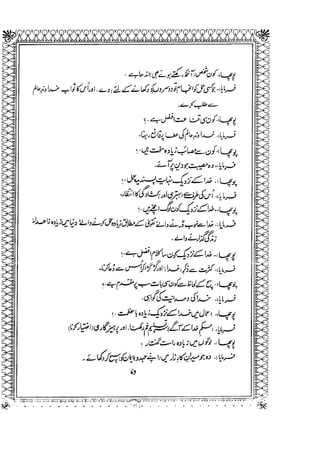 پوچھا۔ کون شخص، آنکھ رکھتے ہوئے بھی اندھا ہے؟
فرمایا۔ جو کسی عمل کو انجام تو دوسروں کو دکھانے کے لئے دے۔ اور اُس کا ثواب خداوند عالم
سے طلب کرے۔
پوچھا۔ کون سی قناعت افضل ہے۔؟
فرمایا۔ خداوند عالم کی عطا پر قانع رہنا۔
پوچھا۔ کون سے مصائب زیادہ سخت ہیں۔؟
فرمایا۔ وہ مصیبت جو دین پر آئے۔
پوچھا۔ خدا کے نزدیک نہایت پسندیدہ عمل۔؟
فرمایا۔ اُس کی طرف سے بہتری اور کشادگی کا انتظار۔
پوچھا۔ خدا کے نزدیک کون لوگ اچھے ہیں۔؟
فرمایا۔ خدا سے خوب ڈرنے والے تقویٰ کے مطابق زیادہ عمل کرنے والے دنیا میں زیادہ زاہدانہ
زندگی گذارنے والے۔
پوچھا۔ خدا کے نزدیک کون سا کلام افضل ہے۔؟
فرمایا۔ کثرت سے ذکرِ خدا، اور گڑگڑا کر اُس سے دعا کرنا۔
پوچھا۔ سچ کے لحاظ سے کون سی بات سب پر مقدم ہے۔؟
فرمایا۔ خدا کی وحدانیت کی گواہی۔
پوچھا۔ اعمال میں خدا کے نزدیک زیادہ باعظمت۔؟
فرمایا۔ حکم خدا کے آگے سر تسلیم خم رکھنا، اور پرہیزگاری اختیار کرنا،
پوچھا۔ لوگوں میں زیادہ راست گفتار۔؟
فرمایا۔ وہ جو میدان کارزار میں اپنے عہد و پیمان کو سچ کر دکھائے۔